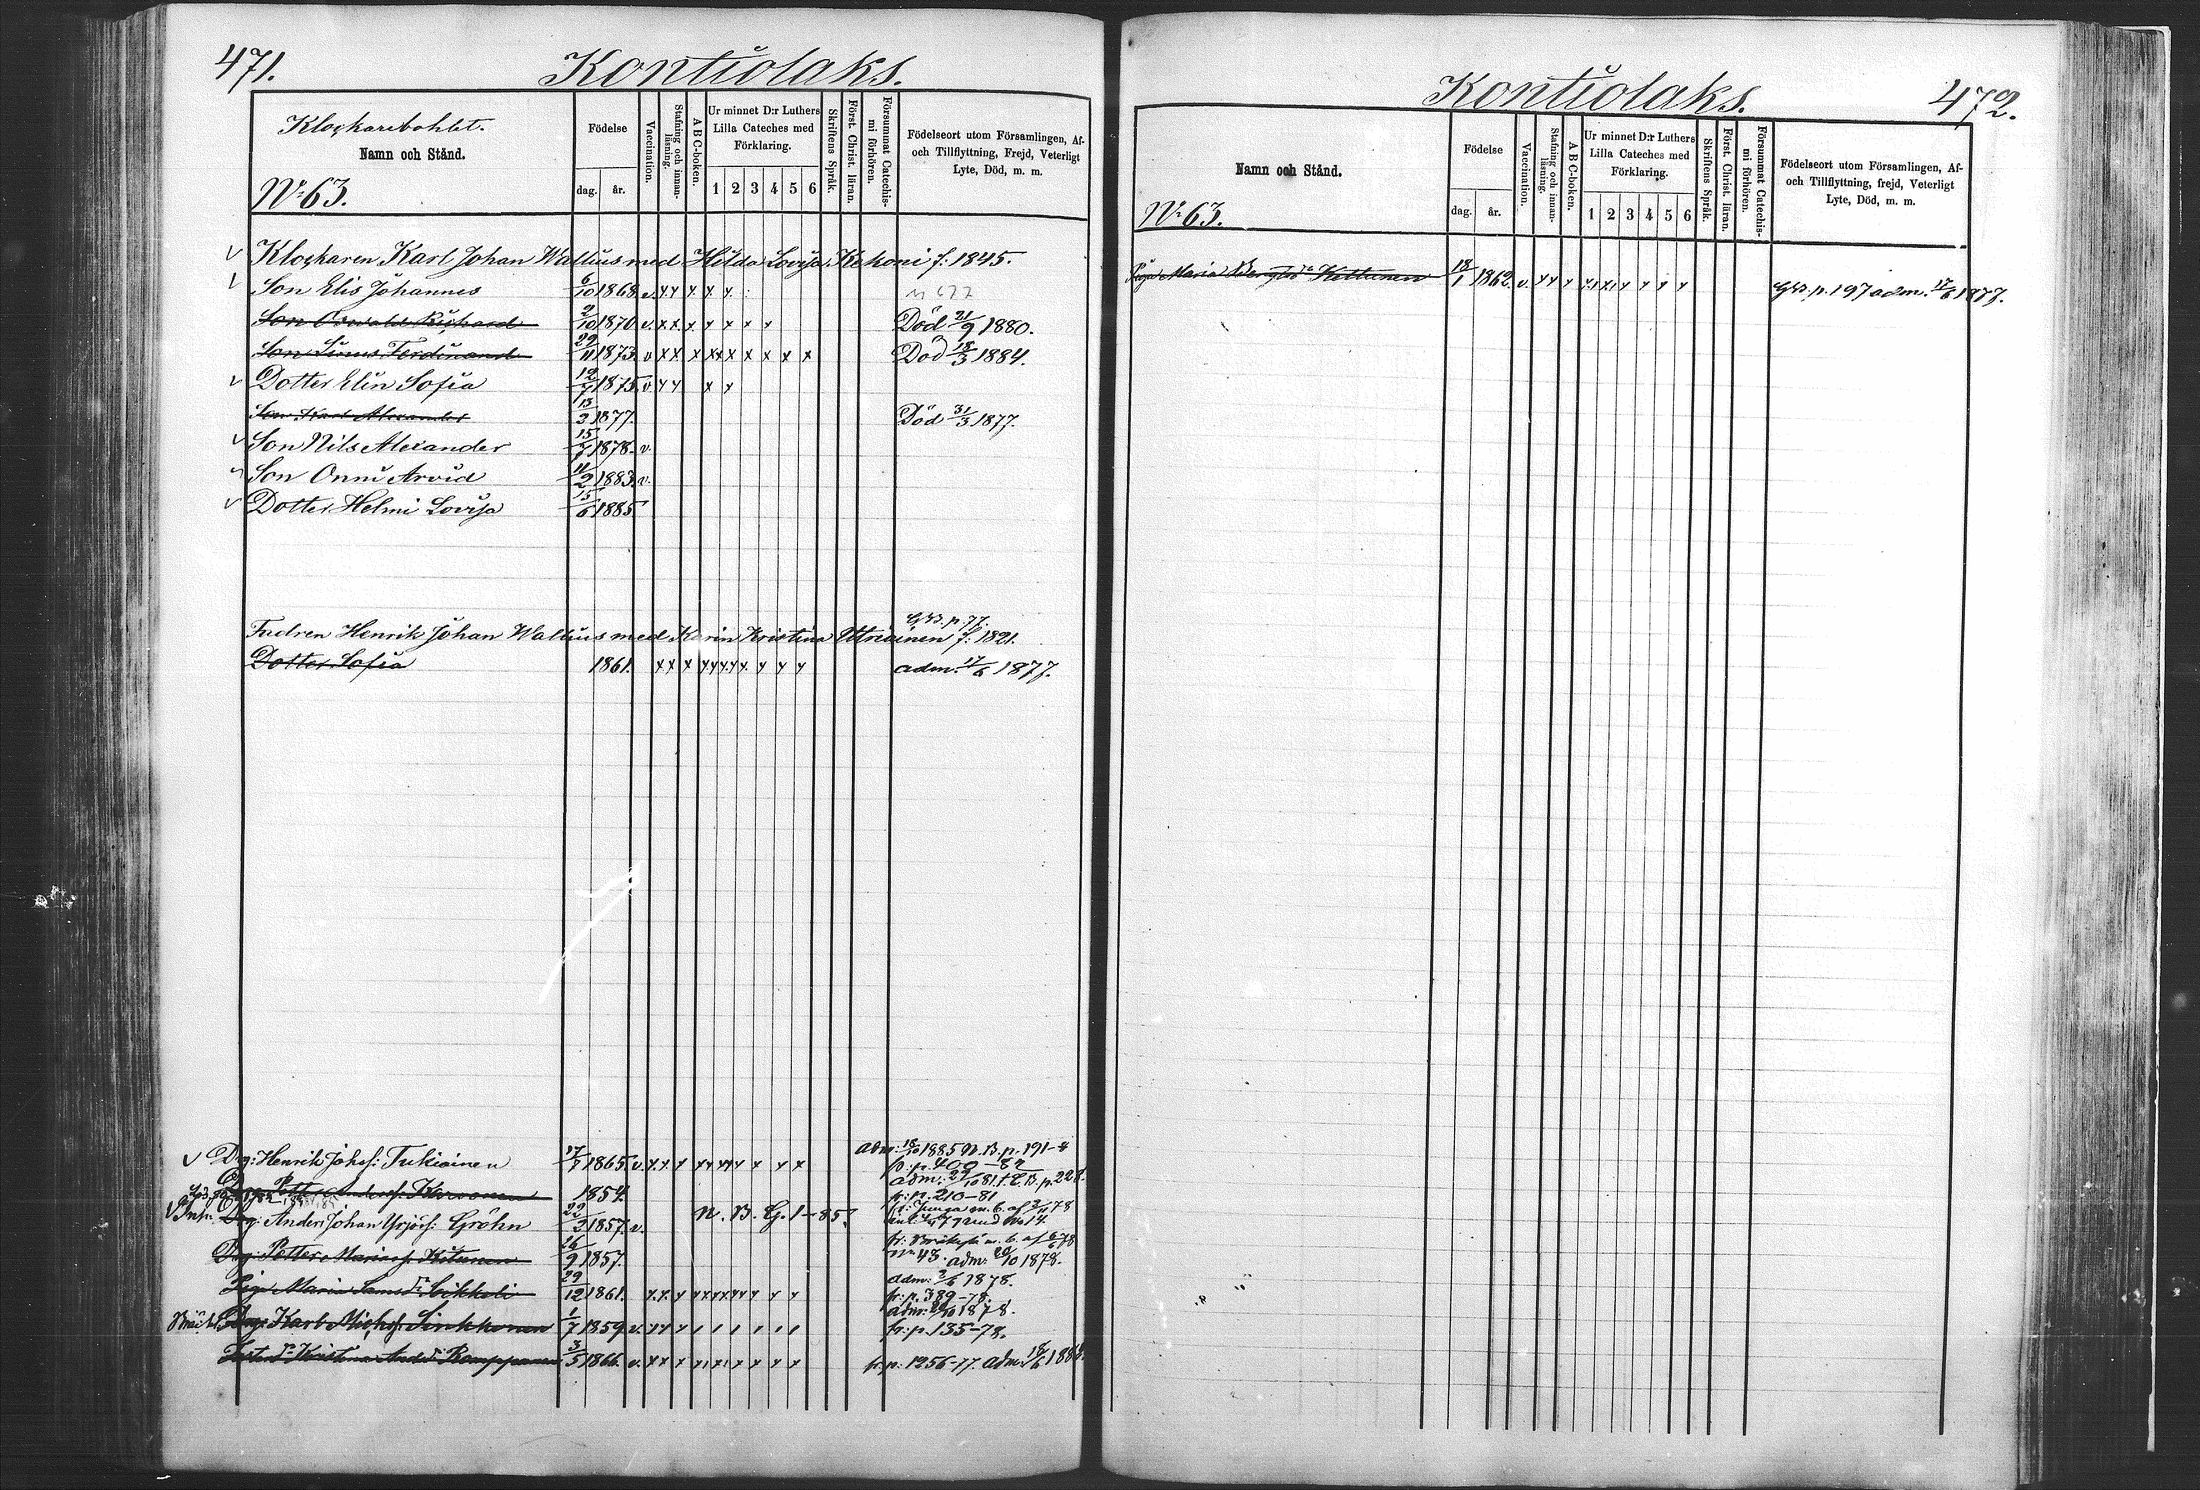 471.
Kontiolaks.
Klockarebohlet.
Namn och Stånd.
No 63.
Födelse
dag.
år.
Vaccination.
Stafning och innan-
läsning.
A B C-boken.
Ur minnet D:r Luthers
Lilla Cateches med
Förklaring.
1 2 3 4 5 6
Skriftens Språk.
Först. Christ. läran.
Försummat Catechis-
mi förhören.
Födelseort utom Församlingen, Af-
och Tillflyttning, Frejd, Veterligt
Lyte, Död, m. m.
v Klockaren Karl Johan Wallius med Hilda Lovisa Kekoni f: 1845.
v Son Elis Johannes 6/10 1868. v. x x x x x
Son Oswald Richard 2/10 1870 v. x x x x x x x Död 21/9 1880.
Son Linus Ferdinand 29/11 1873. v x x x x x x x x x x Död 18/3 1884.
v Dotter Elin Sofia 12/7 1875. v. x x x x
Son Karl Alexander 13/2 1877. Död 31/3 1877.
v Son Nils Alexander 15/7 1878. v.
v Son Onni Arvid 11/2 1883. v.
v Dotter Helmi Lovisa 15/6 1885
p. 77.
Fadren Henrik Johan Wallius med Karin Kristina Utriainen f: 1821.
Dotter Sofia 1861. x x x x x x x x x x x adm. 17/6 1877.
v Drg: Henrik Johs: Tukiainen 17/7 1865. v. x x x x x x x x x x adm: 18/10 1885 p. 191-4
fr: p. 400-82
Petter Anderss: Karvonen 1854. adm: 1081. p. 228.
fr: p. 210-81
Drg: Anders Johan Yrjös: Gröhn 22/2 1857. v. N. B. G. 1-85.
Drg: Petter Mariass: Kitunen 26/9 1857. 43. adm: 20/10 1878.
Pig: Maria Sams dr: Cikkoli 29/12 1861. x x x x x x x x x x x adm: 2/6 1878.
fr: p. 389-78.
Karl Michs: Sinkkonen 1/7 1859 v. x x x adm: 1878.
fr: p. 135-78.
Kristina And: dr Romppanen 3/5 1866. v. x x x x x x x x x fr: p. 1256-77. adm.
Kontiolaks.
472.
Namn och Stånd.
No 63.
Födelse
dag.
år.
Vaccination.
Stafning och innan-
läsning.
A B C-boken.
Ur minnet D:r Luthers
Lilla Cateches med
Förklaring.
1 2 3 4 5 6
Skriftens Språk.
Först. Christ. läran.
Försummat Catechis-
mi förhören.
Födelseort utom Församlingen, Af-
och Tillflyttning, frejd, Veterligt
Lyte, Död, m. m.
Piga Maria Bengts dr Kettunen 18/1 1862. v. x x x x x x x x x p. 197 adm. 17/6 1877.